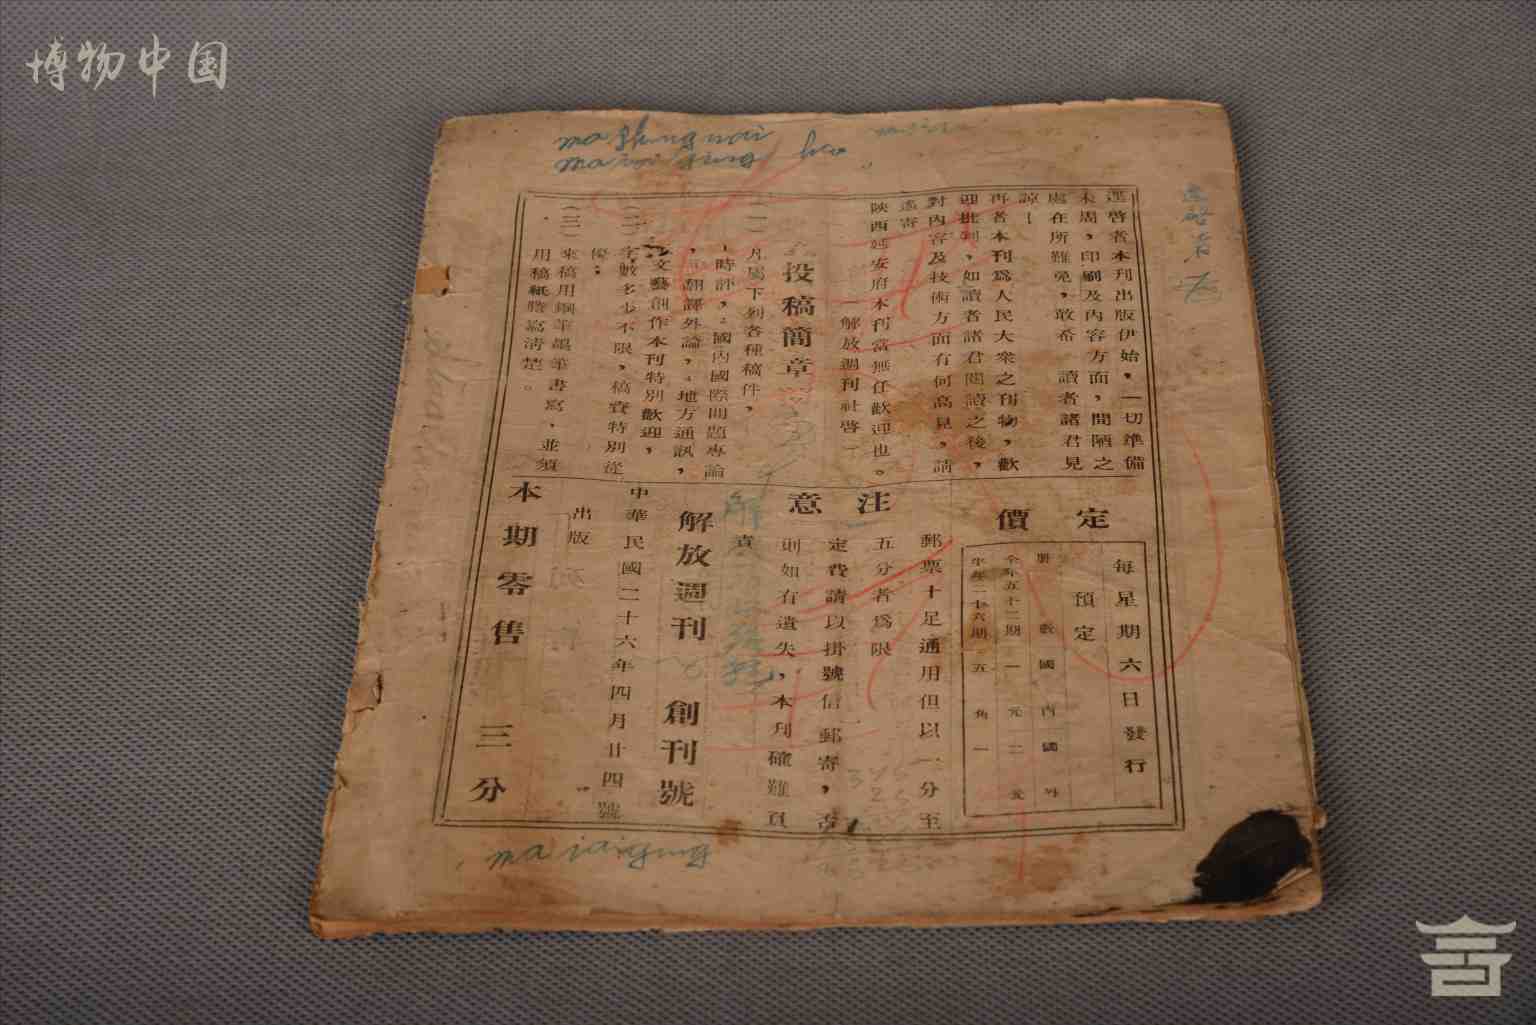 博物中国
逕啓者本刊出版伊始，一切準備
未周，印刷及內容方面，簡陋之
處在所難免，敢希　讀者諸君見
諒！
再者本刊爲人民大衆之刊物，歡
迎批判，如讀者諸君閱讀之後，
對內容及技術方面有何高見，請
逕寄
陝西延安府本刊當無任歡迎也。
—解放週刊社啓—
投稿簡章
（一）凡屬下列各種稿件，
1時評，2國內國際問題專論
，3翻譯外論，4地方通訊，
文藝創作本刊特別歡迎，
（二）字數多少不限，稿費特別從
優；
（三）來稿用鋼筆鉛筆書寫，並須
用稿紙謄寫清楚。
定價
每星期六日發行
預定
期數　國內　國外
全年五十二期　一元　二元
半年二十六期　五角　一元
注意
郵票十足通用但以一分至
五分者爲限
定費請以掛號信郵寄，否
則如有遺失，本刊確難負
責
解放週刊　創刊號
中華民國二十六年四月廿四號
出版
本期零售　三分